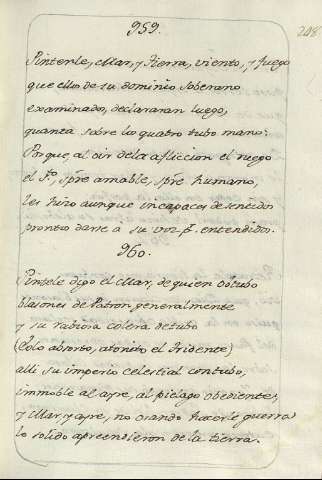 959.
208
Pintenle, Mar, y Tierra, viento, y fuego
que ellos de su dominio soberano
examinados, declararan luego,
quanta sobre los quatro tubo mano:
Porque, al oir de la afliccion el ruego
el Sto, spre amable, spre humano,
les hizo aunque incapaces de
pronto darse a su voz, pr. entendidos.
960.
Pinsele digo el Mar, de quien obtubo
blasones de Patron generalmente
y su rabiosa colera detubo
(Eolo absorto, atonito el Tridente)
alli su imperio celestial contubo,
immoble al ayre, al pielago obediente,
y Mar, y ayre, no osando hacerle guerra
lo solido aprendieron de la tierra.